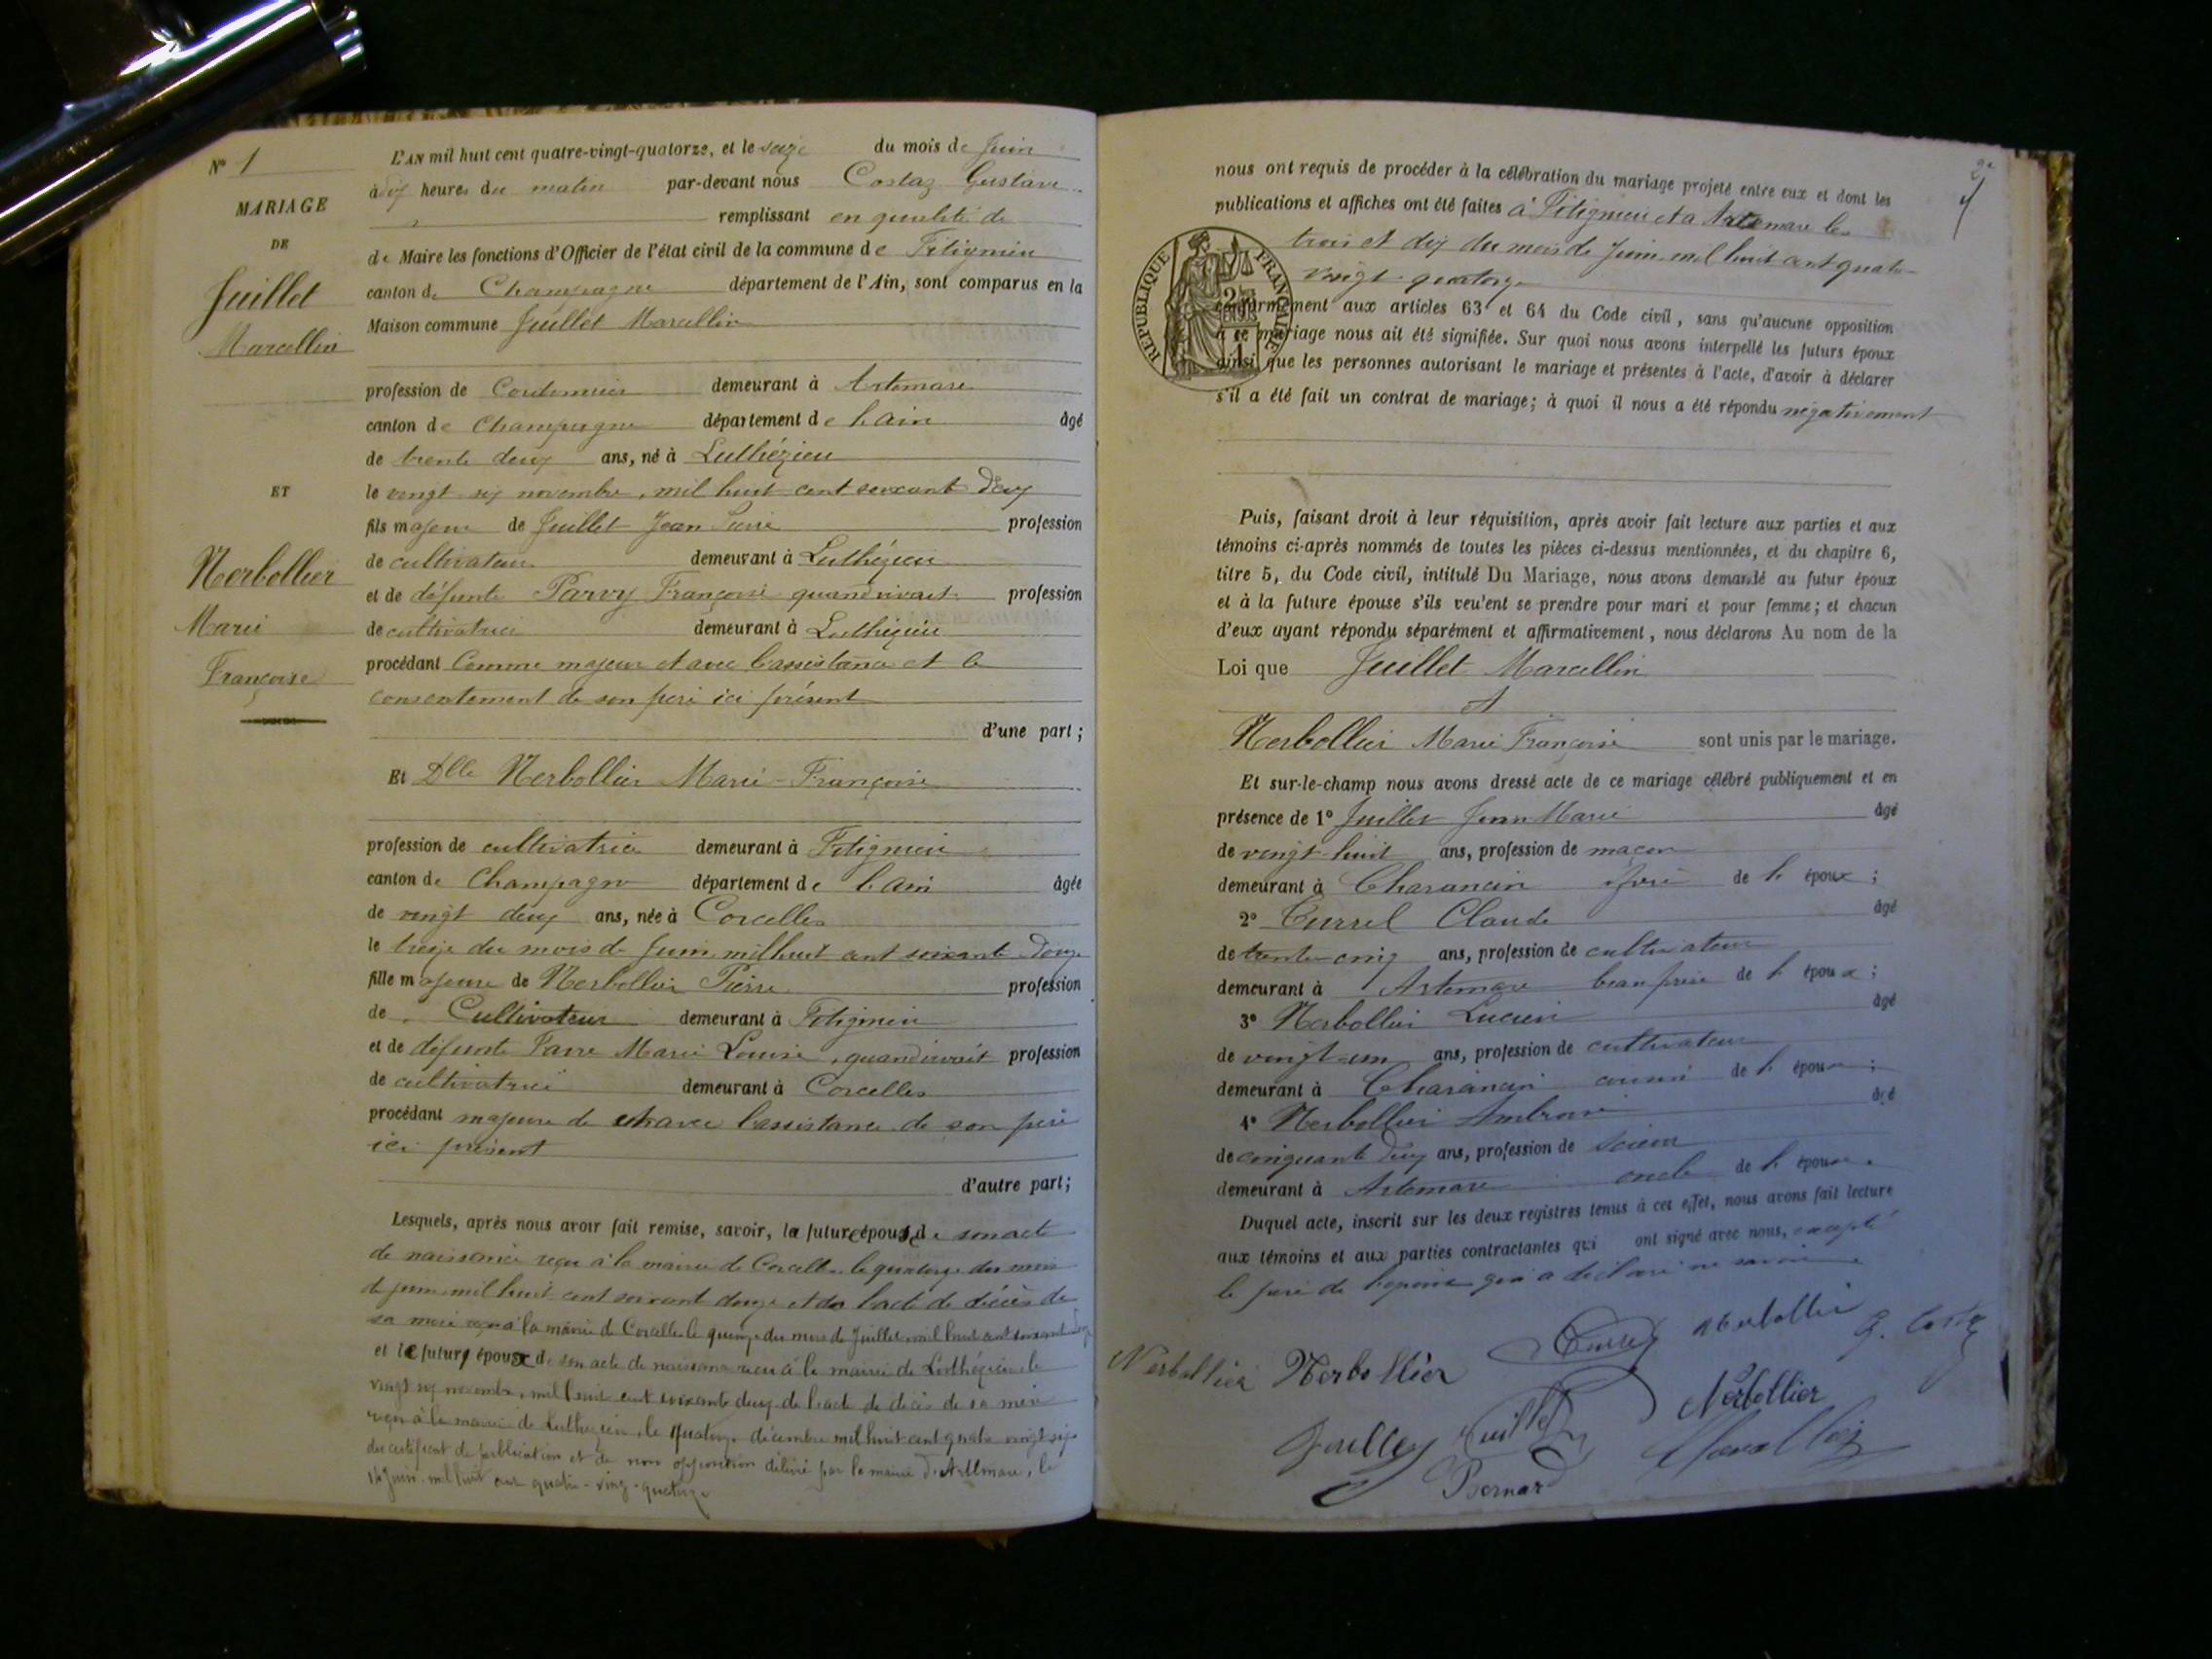 N° 1
MARIAGE
DE
Juillet
Marcellin
ET
Nerbollier
Marie
Françoise
L'AN mil huit cent quatre-vingt-quatorze, et le seize du mois de Juin
à dix heures du matin par-devant nous Costaz Gustave
remplissant en qualité de
de Maire les fonctions d'Officier de l'état civil de la commune de Fitignieu
canton de Champagne département de l'Ain, sont comparus en la
Maison commune Juillet Marcellin
profession de Cordonnier demeurant à Artemare
canton de Champagne département de l'ain âgé
de trente deux ans, né à Luthézieu
le vingt six novembre, mil huit cent soixante deux
fils majeur de Juillet Jean Pierre profession
de cultivateur demeurant à Luthézieu
et de défunte Parvy Françoise quand vivait profession
de cultivatrice demeurant à Luthézieu
procédant comme majeur et avec l'assistance et le
consentement de son père ici présent
d'une part ;
Et Dlle Nerbollier Marie-Françoise
profession de cultivatrice demeurant à Fitignieu
canton de Champagne département de l'Ain âgée
de vingt deux ans, née à Corcelles
le treize du mois de Juin mil huit cent soixante douze
fille majeure de Nerbollier Pierre profession
de Cultivateur demeurant à Fitignieu
et de défunte Favre Marie Louise, quand vivait profession
de cultivatrice demeurant à Corcelles
procédant majeure de et avec l'assistance de son père
ici présent
d'autre part ;
Lesquels, après nous avoir fait remise, savoir, la future épouse de son acte
de naissance reçu à la mairie de Corcelles le quatorze du mois
de juin mil huit cent soixante douze et de l'acte de décès de
sa mère reçu à la mairie de Corcelles le quinze du mois de Juillet mil huit cent soixante
et le futur époux de son acte de naissance reçu à la mairie de Luthézieu le
vingt six novembre, mil huit cent soixante deux, de l'acte de décès de sa mère
reçu à la mairie de Luthézieu, le quatorze décembre mil huit cent quatre vingt six
du certificat de publication et de non opposition délivré par la mairie d'Artemare, le
16 Juin mil huit cent quatre-ving-quatorze
2e
nous ont requis de procéder à la célébration du mariage projeté entre eux et dont les
publications et affiches ont été faites à Fitignieu et à Artemare les
trois et dix du mois de Juin mil huit cent quatre-
vingt-quatorze
RÉPUBLIQUE FRANÇAISE
conformément aux articles 63 et 64 du Code civil, sans qu'aucune opposition
à ce mariage nous ait été signifiée. Sur quoi nous avons interpellé les futurs époux
ainsi que les personnes autorisant le mariage et présentes à l'acte, d'avoir à déclarer
s'il a été fait un contrat de mariage ; à quoi il nous a été répondu négativement
Puis, faisant droit à leur réquisition, après avoir fait lecture aux parties et aux
témoins ci-après nommés de toutes les pièces ci-dessus mentionnées, et du chapitre 6,
titre 5, du Code civil, intitulé Du Mariage, nous avons demandé au futur époux
et à la future épouse s'ils veulent se prendre pour mari et pour femme ; et chacun
d'eux ayant répondu séparément et affirmativement, nous déclarons Au nom de la
Loi que Juillet Marcellin
et
Nerbollier Marie Françoise sont unis par le mariage.
Et sur-le-champ nous avons dressé acte de ce mariage célébré publiquement et en
présence de 1° Juillet Jean Marie âgé
de vingt-huit ans, profession de maçon
demeurant à Charancin frère de l'époux ;
2° Curssel Claude âgé
de trente-cinq ans, profession de cultivateur
demeurant à Artemare beau frère de l'époux ;
3° Nerbollier Lucien âgé
de vingt-un ans, profession de cultivateur
demeurant à Charancin cousin de l'épouse ;
4° Nerbollier Ambroise âgé
de cinquante deux ans, profession de scieur
demeurant à Artemare oncle de l'épouse.
Duquel acte, inscrit sur les deux registres tenus à cet effet, nous avons fait lecture
aux témoins et aux parties contractantes qui ont signé avec nous, excepté
le père de l'epouse qui a déclaré ne savoir
Nerbollier Nerbollier Nerbollier G. Costaz
Juillet Juillet Nerbollier
Bernard